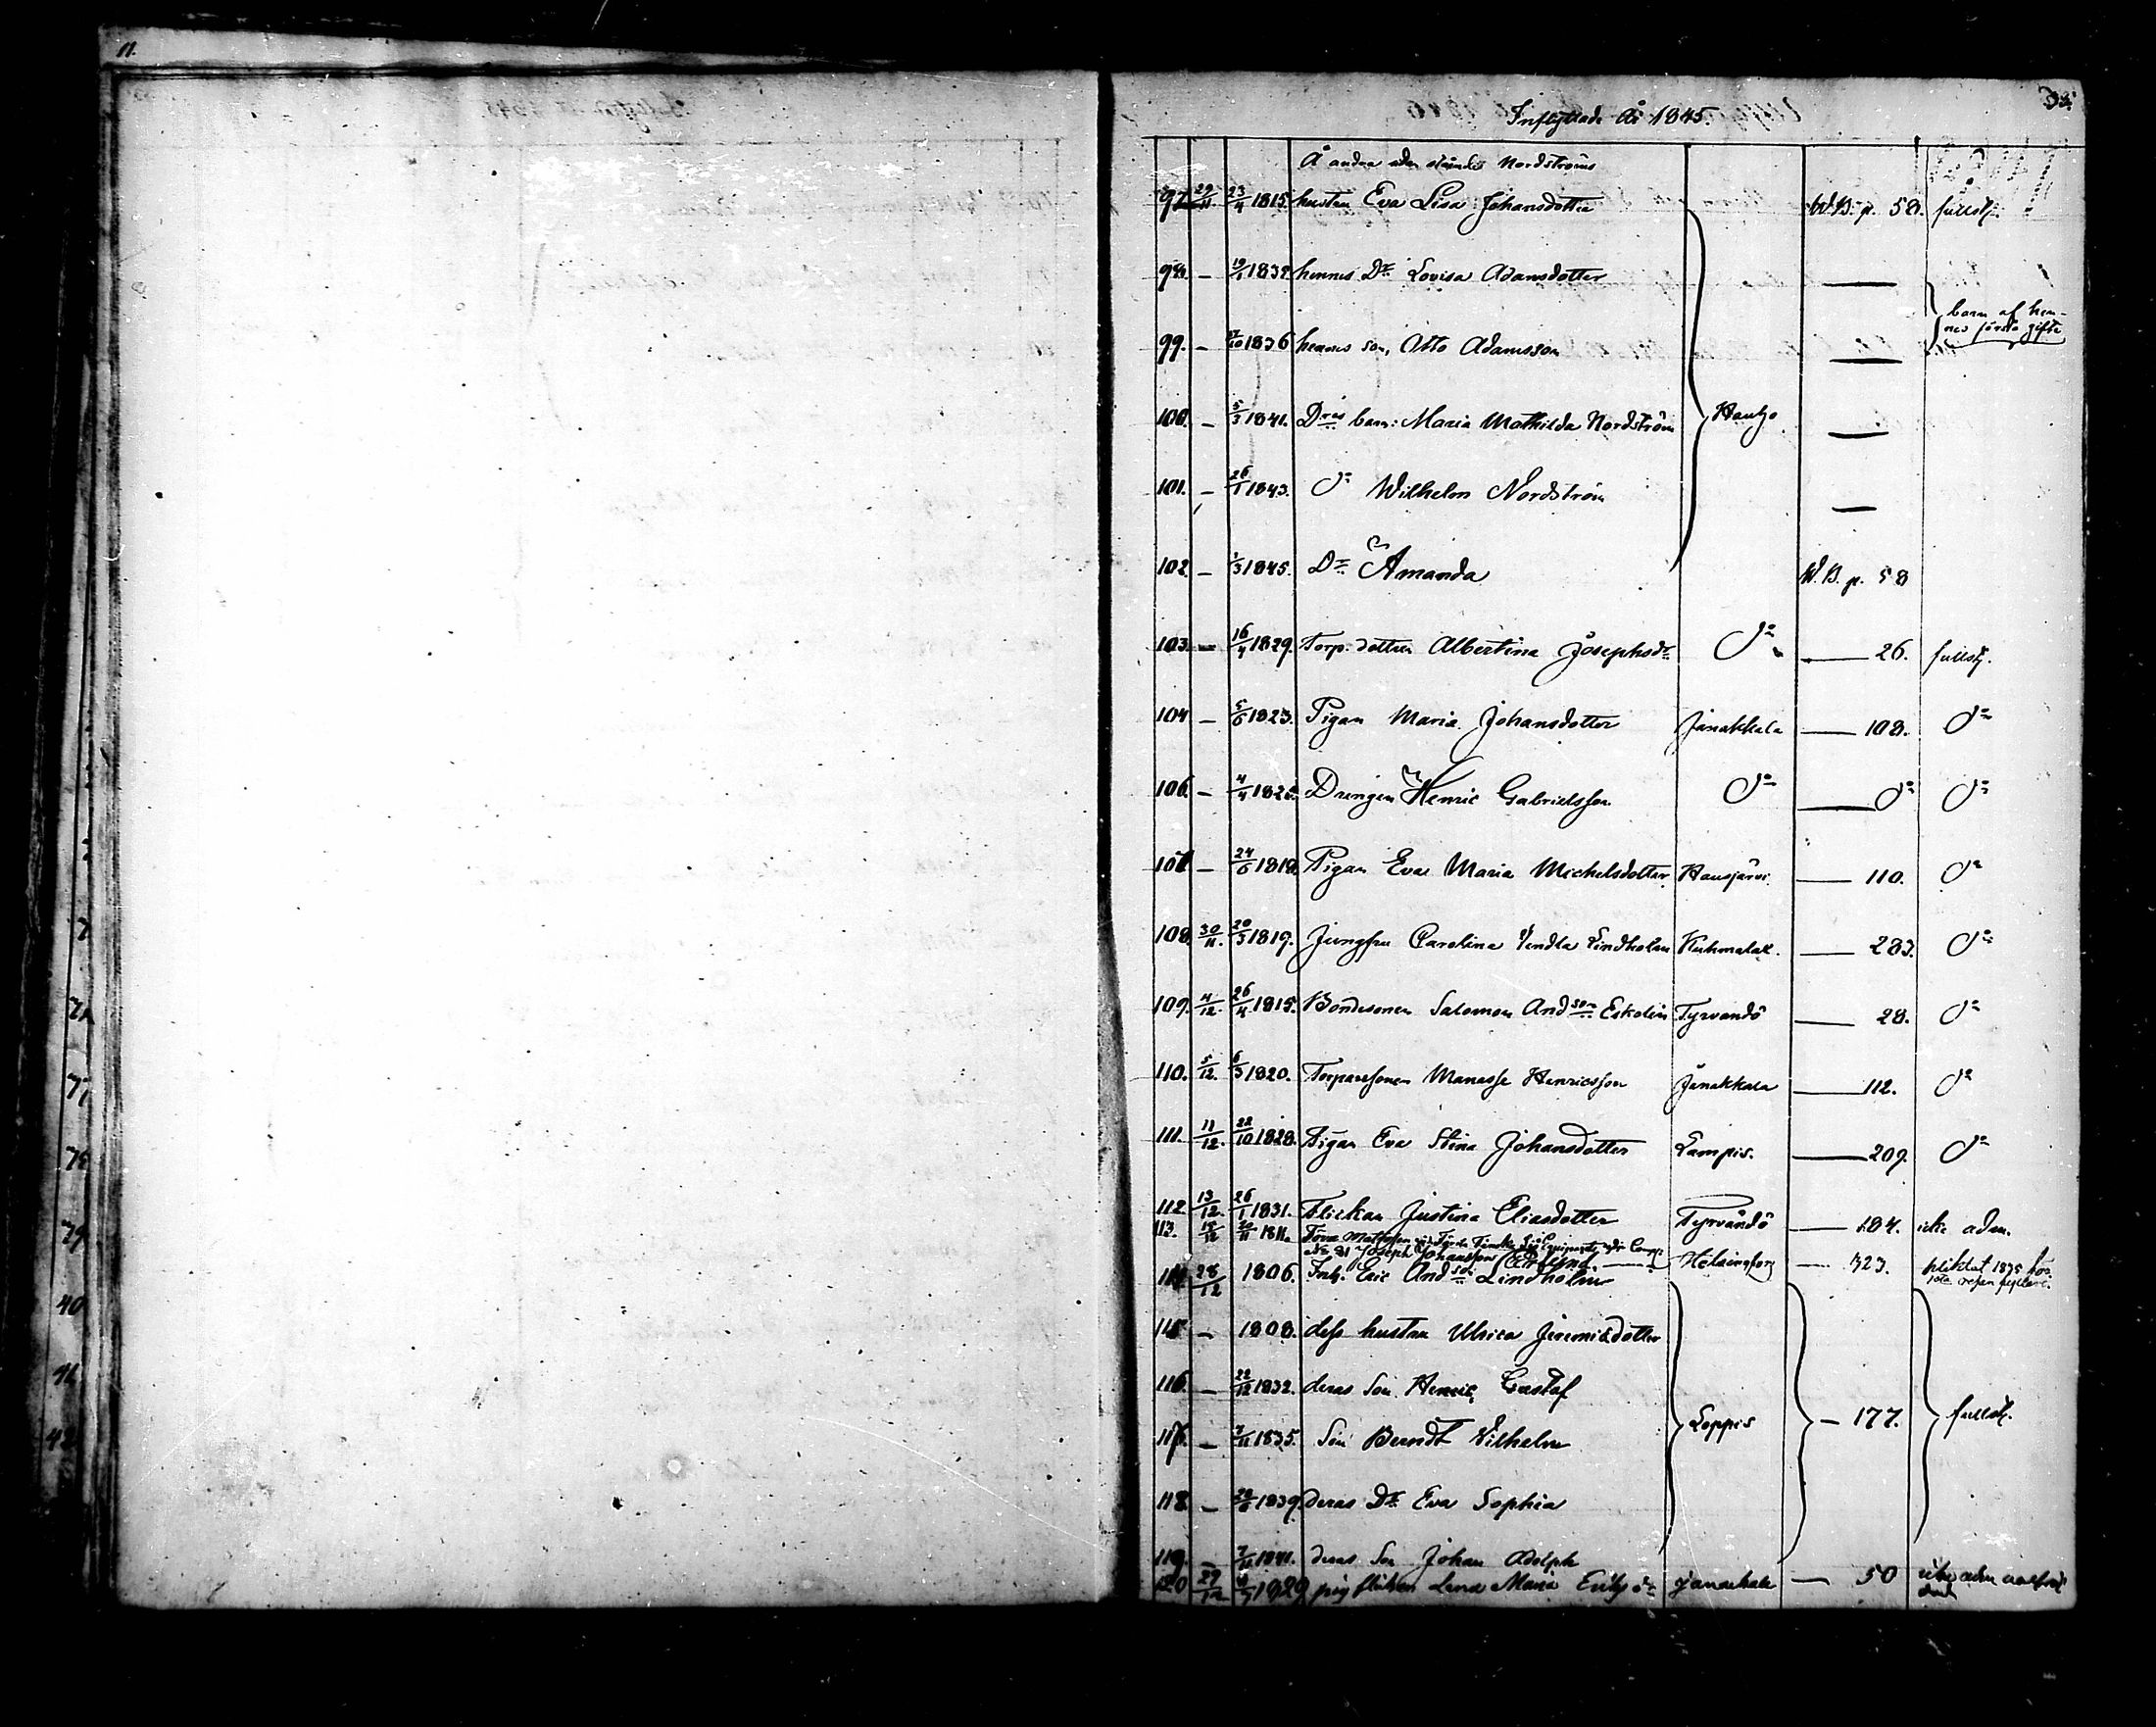 11.
Inflyttade År 1845.
Å andra sidan stående Nordströms
97. 29/11. 23/4 1815. hustru Eva Lisa Johansdotter W.B. p. 58. fullst.
98. — 19/1 1832. hennes Dr Lovisa Adamsdotter —
barn af hen-
nes första gifte
99. — /10 1836 hennes son, Otto Adamsson —
100. — 5/3 1841. Dras barn: Maria Mathilda Nordström Hauho —
101. — 26/1 1843. do Wilhelm Nordström —
102. — 1/3 1845. Dr Amanda W.B. p. 58
103. — 16/4 1829. Torp. dottren Albertina Josephsdr do — 26. fullst.
104 — 5/6 1823. Pigan Maria Johansdotter Janakkala — 108. do
106. — 4/4 1825. Drengen Henric Gabrielsson do — do do
107 — 24/6 1818. Pigan Eva Maria Michelsdotter Hausjärvi — 110. do
108. 30/11. 20/3 1819. Jungfru Carolina Vendla Lindholm Kuhmalax. — 283. do
109. 4/12. 26/4 1815. Bondesonen Salomon Andson Eskolin Tyrvändö — 28. do
110. 5/12. 6/3 1820. Torparesonen Manasse Henricsson Janakkala — 112. do
111. 11/12. 22/10 1828. Pigan Eva Stina Johansdotter Lampis. — 209. do
112 13/12. 26/1 1831. Flickan Justina Eliasdotter Tyrvändö — 184. icke adm.
113. 15/12 /11 1811. Finska
No 31 Joseph Johansson Helsingfors — 323. 1835
114 28/12 1806. Inh. Eric Andson Lindholm
115 — 1808. dess hustru Ulrica Jeremiædotter
116. — 22/12 1832. deras Son Henric Gustaf
117. — 7/11 1835. Son Berndt Vilhelm Loppis — 177. fullst.
118. — 28/8 1839. deras Dr Eva Sophia
119. — 7/11 1841. deras Son Johan Adolph
120 29/12 1829 pigflickan Lena Maria Janakkala — 50 icke adm